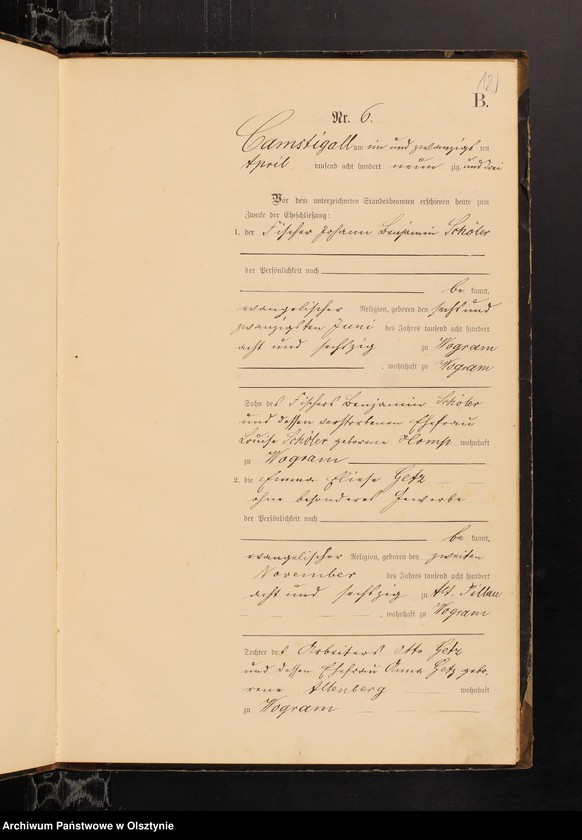 121
B.
Nr. 6.
Camstigall am ein und zwanzigsten
April tausend acht hundert neunzig und drei
Vor dem unterzeichneten Standesbeamten erschienen heute zum
Zwecke der Eheschließung:
1. der Fischer Johann Benjamin Schöler
der Persönlichkeit nach
bekannt,
evangelischer Religion, geboren den sechs und
zwanzigsten Juni des Jahres tausend acht hundert
acht und sechszig zu Wogram
, wohnhaft zu Wogram
Sohn des Fischers Benjamin Schöler
und dessen verstorbenen Ehefrau
Louise Schöler geborene wohnhaft
zu Wogram
2. die Emma Eliese Getz
ohne besonderes Gewerbe
der Persönlichkeit nach
bekannt,
evangelischer Religion, geboren den zweiten
November des Jahres tausend acht hundert
acht und sechszig zu Alt. Pillau
, wohnhaft zu Wogram
Tochter des Arbeiters Otto Getz
und dessen Ehefrau Anna Getz gebo-
rene Altenberg wohnhaft
zu Wogram
Archiwum Państwowe w Olsztynie